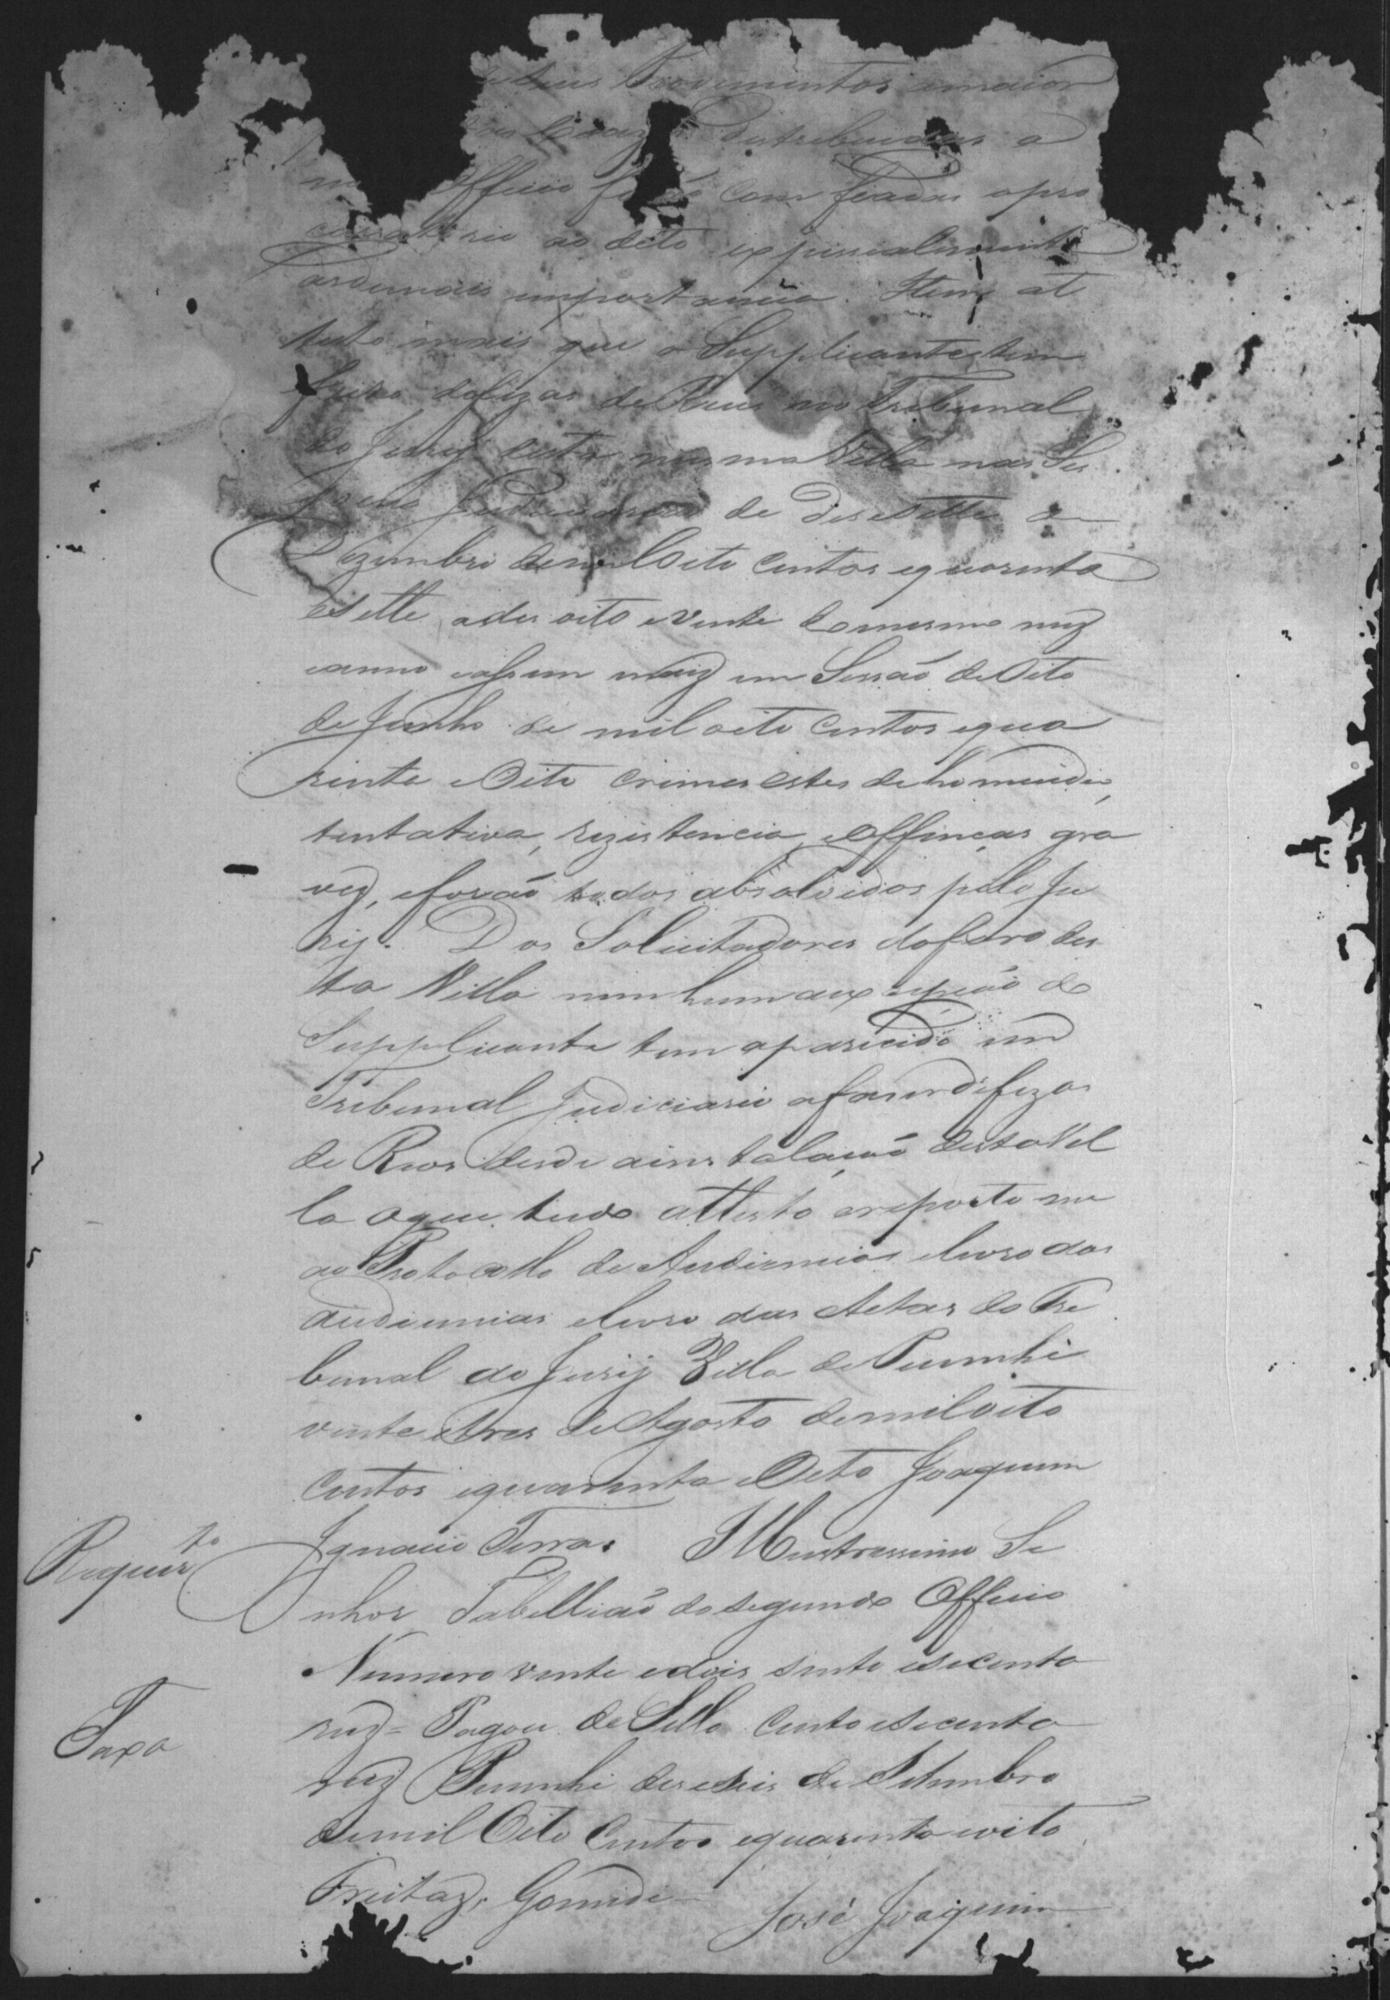 Provimentos
Distribuidas a
Officio confiadas apro
ao dito expecialmente
importancia. Item at
testo mais que o Supplicante tem
feito defizas de Reus no Tribunal
do Jury desta mesma Villa nas Ses
de desesette de
Dezembro de mil Oito centos equarenta
esette, adesoito evinte do mesmo mez
eanno em Sessão de Oito
de Junho de mil oito centos equa
renta eOito crimes estes de homicidio,
tentativa, rezistencia, eOffenças gra
vez, eforão todos absolvidos pelo Ju
ry. Dos Solicitadores doforo des
ta Villa nenhum aexcepção do
Supplicante tem aparecido em
Tribunal Judiciario afaser defezas
de Reos desde ainstalação desta Vil
la oque tudo attesto ereporto me
ao Protocollo de Audiencias elivro das
audiencias elivro das Actas do Tri
bunal do Jury Villa de Piumhi
vinte etres de Agosto demil oito
centos equarenta eOito Joaquim
Requerimto
Ignacio Terra. Illustrissimo Se
nhor Tabellião do segundo Officio
Numero vinte edois sento esecenta
Taxa
reiz = Pagou de Sello cento esecenta
reiz Piumhi deseseis de Setembro
demil Oito Centos equarenta eoito
Freitaz, Gomide = José Joaquim